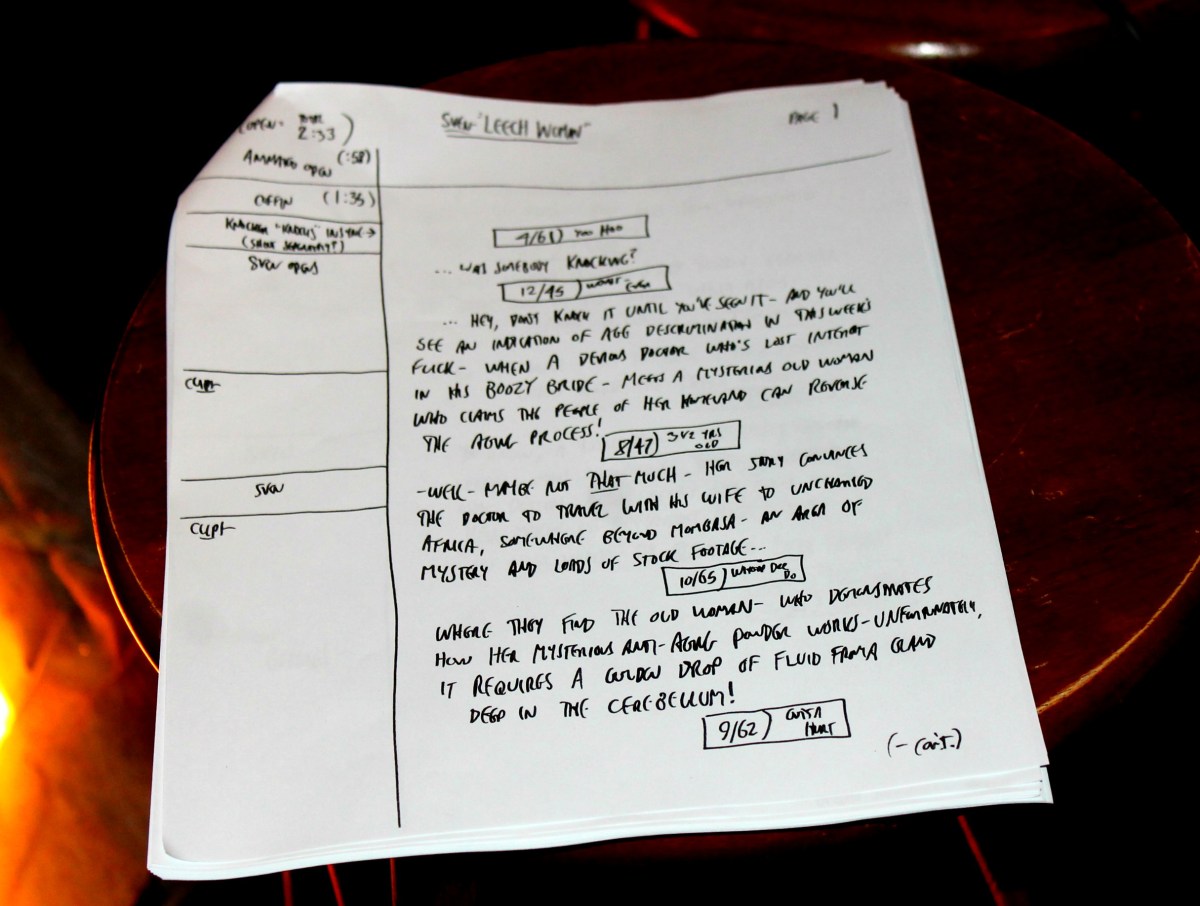 (OPEN- 2:33)
SVEN- "LEECH WOMAN"
PAGE 1
ANIMATED OPEN (:58)
COFFIN (1:35)
(SHOW
SVEN OPENS
CLIP
SVEN
CLIP
9/61) YOO HOO
... WAS SOMEBODY KNOCKING?
12/45) WORST - EVER
... HEY, DON'T KNOCK IT UNTIL YOU'VE SEEN IT- AND YOU'LL
SEE AN INDICATION OF AGE DESCRIMINATION IN THIS WEEK'S
FLICK- WHEN A DEVIOUS DOCTOR WHO'S LOST INTEREST
IN HIS BOOZY BRIDE- MEETS A MYSTERIOUS OLD WOMAN
WHO CLAIMS THE PEOPLE OF HER HOMELAND CAN REVERSE
THE AGING PROCESS!
8/47) 3 1/2 YRS OLD
-WELL- MAYBE NOT THAT MUCH- HER STORY CONVINCES
THE DOCTOR TO TRAVEL WITH HIS WIFE TO UNCHARTED
AFRICA, SOMEWHERE BEYOND MOMBASA- AN AREA OF
MYSTERY AND LOADS OF STOCK FOOTAGE...
10/65) DO
WHERE THEY FIND THE OLD WOMAN- WHO DEMONSTRATES
HOW HER MYSTERIOUS ANTI-AGING POWDER WORKS- UNFORTUNATELY,
IT REQUIRES A GOLDEN DROP OF FLUID FROM A GLAND
DEEP IN THE CEREBELLUM!
9/62) GOTTA HURT
(- CONT.)